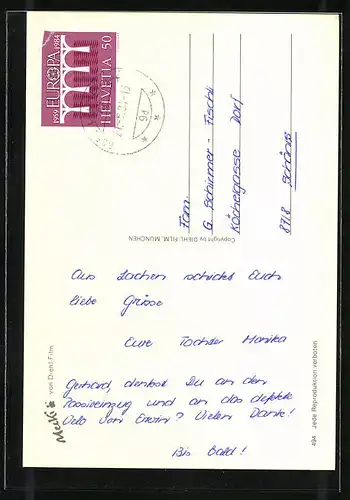 1959 EUROPA 1984
HELVETIA 50
Fam.
G. Schirmer - Fischli
Köchelgasse Dorf
8718 Schänis
Copyright by DIEHL-FILM, MÜNCHEN
Aus Lachen schickt Euch
liebe Grüsse
Eure Tochter Monika
Gerhard, denkst Du an den
Passiveinzug und an das defekte
Velo von Erwin? Vielen Dank!
Bis bald!
Mecki von Diehl-Film
494 Jede Reproduktion verboten